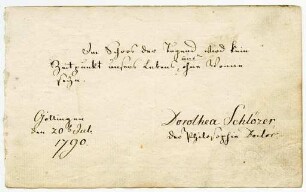 Im Schoos der Tugend wird kein
Zeitpunkt unsers Lebens uns ohne Wonne
seyn.
Göttingen
den 20 Jul.
1790.
Dorothea Schlözer
der Philosophie Doctor